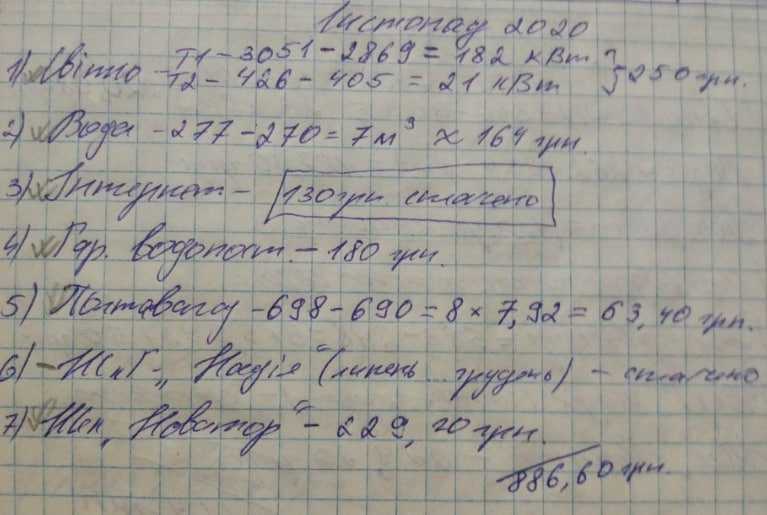 Листопад 2020
1) Світло - Т1 - 3051 - 2869 = 182 кВт } 250 грн.
Т2 - 426 - 405 = 21 кВт
2) Вода - 277 - 270 = 7 м³ ≈ 164 грн.
3) Інтернет - 130 грн сплачено
4) Гар. водопост. - 180 грн.
5) Полтавагаз - 698 - 690 = 8 × 7,92 = 63,40 грн.
6) - ЖКГ „Надія" (липень ... грудень) - сплачено
7) „Новатор" - 229, 20 грн.
886,60 грн.